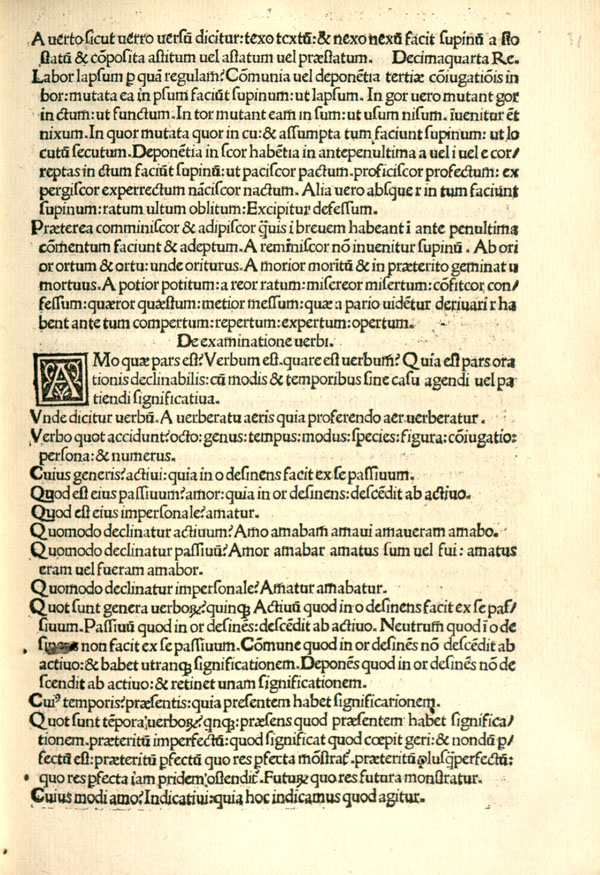 31
A uerto sicut uerro uersũ dicitur: texo textũ: & nexo nexũ facit supinũ a sto
statũ & cõposita astitum uel astatum uel præstatum. Decimaquarta Re.
Labor lapsum p quã regulam? Cõmunia uel deponẽtia tertiæ cõiugatiõis in
bor: mutata ea in psum faciũt supinum: ut lapsum. In gor uero mutant gor
in ctum: ut functum. In tor mutant eam in sum: ut usum nisum. iuenitur ẽt
nixum. In quor mutata quor in cu: & assumpta tum faciunt supinum: ut lo
cutũ secutum. Deponẽtia in scor habẽtia in antepenultima a uel i uel e cor/
reptas in ctum faciũt supinũ: ut paciscor pactum. proficiscor profectum: ex
pergiscor experrectum nãciscor nactum. Alia uero absque r in tum faciunt
supinum: ratum ultum oblitum: Excipitur defessum.
Præterea comminiscor & adipiscor q̃uis i breuem habeant ĩ ante penultima
cõmentum faciunt & adeptum. A reminiscor nõ inuenitur supinũ. Ab ori
or ortum & ortu: unde oriturus. A morior moritũ & in præterito geminat u
mortuus. A potior potitum: a reor ratum: misereor misertum: cõfitcor con/
fessum: quæror quæstum: metior messum: quæ a pario uidẽtur deriuari r ha
bent ante tum compertum: repertum: expertum: opertum.
De examinatione uerbi.
AMo quæ pars est? Verbum est. quare est uerbum? Quia est pars ora
tionis declinabilis: cũ modis & temporibus sine casu agendi uel pa
tiendi significatiua.
Vnde dicitur uerbũ. A uerberatu aeris quia proferendo aer uerberatur.
Verbo quot accidunt? octo: genus: tempus: modus: species: figura: cõiugatio:
persona: & numerus.
Cuius generis? actiui: quia in o desinens facit ex se passiuum.
Quod est eius passiuum? amor: quia in or desinens: descẽdit ab actiuo.
Quod est eius impersonale? amatur.
Quomodo declinatur actiuum? Amo amabam amaui amaueram amabo.
Quomodo declinatur passiuũ? Amor amabar amatus sum uel fui: amatus
eram uel fueram amabor.
Quomodo declinatur impersonale? Amatur amabatur.
Quot sunt genera uerboꝝ? quinqꝫ Actiuũ quod in o desinens facit ex se pas/
siuum. Passiuũ quod in or desinẽs: descẽdit ab actiuo. Neutrum quod ĩ o de
non facit ex se passiuum. Cõmune quod in or desinẽs nõ descẽdit ab
actiuo: & habet utranqꝫ significationem. Deponẽs quod in or desinẽs nõ de
scendit ab actiuo: & retinet unam significationem.
Cuiꝰ temporis? præsentis: quia presentem habet significationem.
Quot sunt tẽpora uerboꝝ? qnqꝫ: præsens quod præsentem habet significa/
tionem. præteritũ imperfectũ: quod significat quod cœpit geri: & nondũ p/
fectũ est: præteritũ pfectũ quo res pfecta mõstrat᷑. præteritũ plusq̃perfectũ:
quo res pfecta iam pridem ostendit᷑. Futuꝝ quo res futura monstratur.
Cuius modi amo? Indicatiui: quia hoc indicamus quod agitur.